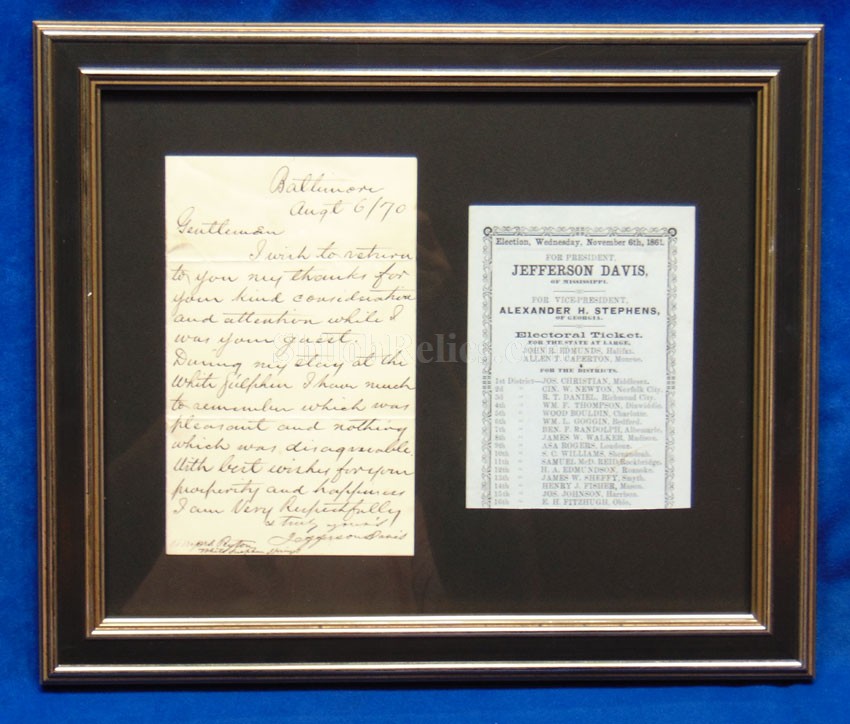 Baltimore
Augt 6/70
Gentlemen
I wish to return
to you my thanks for
your kind consideration
and attention while I
was your guest.
During my stay at the
White Sulpher I have much
to remember which was
pleasant and nothing
which was disagreeable.
With best wishes for your
prosperity and happiness
I am Very Respectfully
& truly yours
Jefferson Davis
Peyton
White Sulpher
Election, Wednesday, November 6th, 1861.
FOR PRESIDENT,
JEFFERSON DAVIS,
OF MISSISSIPPI.
FOR VICE-PRESIDENT,
ALEXANDER H. STEPHENS,
OF GEORGIA.
Electoral Ticket.
FOR THE STATE AT LARGE,
JOHN R. EDMUNDS, Halifax.
ALLEN T. CAPERTON, Monroe.
FOR THE DISTRICTS.
1st District—JOS. CHRISTIAN, Middlesex.
2d " CIN. W. NEWTON, Norfolk City.
3d " R. T. DANIEL, Richmond City.
4th " WM. F. THOMPSON, Dinwiddie.
5th " WOOD BOULDIN, Charlotte.
6th " WM. L. GOGGIN, Bedford.
7th " BEN. F. RANDOLPH, Albemarle.
8th " JAMES W. WALKER, Madison.
9th " ASA ROGERS, Loudoun.
10th " S. C. WILLIAMS, Shenandoah.
11th " SAMUEL McD. REID, Rockbridge.
12th " H. A. EDMUNDSON, Roanoke.
13th " JAMES W. SHEFFY, Smyth.
14th " HENRY J. FISHER, Mason.
15th " JOS. JOHNSON, Harrison.
16th " E. H. FITZHUGH, Ohio.